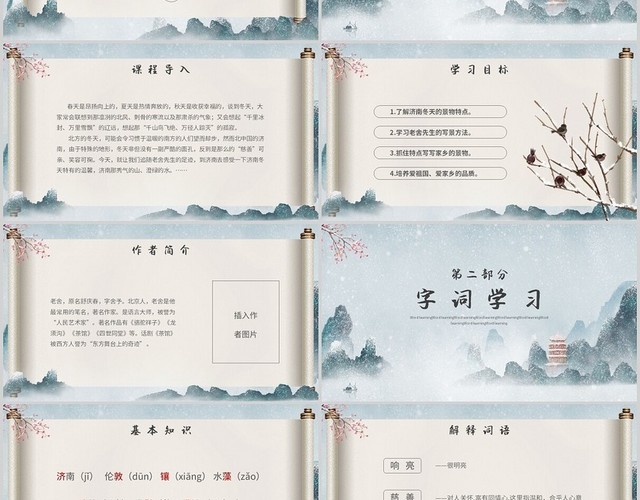 课程导入
春天是昂扬向上的，夏天是热情奔放的，秋天是收获幸福的，谈到冬天，大
家常会联想到那凛冽的北风，刺骨的寒流以及那肃杀的气象；又会想起“千里冰
封，万里雪飘”的辽远，想起那“千山鸟飞绝，万径人踪灭”的孤寂。
北方的冬天，可能会令习惯于温暖的南方的人们望而却步，然而北中国的济
南，由于特殊的地形，冬天非但没有一副严酷的面孔，反到是那么的“慈善”可
亲、笑容可掬。今天，就让我们追随老舍先生的足迹，到济南去感受一下济南冬
天特有的温馨，济南那秀气的山，澄绿的水。
学习目标
1.了解济南冬天的景物特点。
2.学习老舍先生的写景方法。
3.抓住特点写写家乡的景物。
4.培养爱祖国、爱家乡的品质。
作者简介
老舍，原名舒庆春，字舍予，北京人，老舍是他
最常用的笔名，著名作家，是语言大师，被誉为
“人民艺术家”。著名作品有《骆驼祥子》《龙
须沟》《茶馆》《四世同堂》等。话剧《茶馆》
被西方人誉为“东方舞台上的奇迹”。
插入作
者图片
第二部分
字词学习
基本知识
济南（jǐ） 伦敦（dūn） 镶（xiāng） 水藻（zǎo）
解释词语
响亮
——很明亮
慈善
——对人关怀,富有同情心,这里指温和，合乎人心意